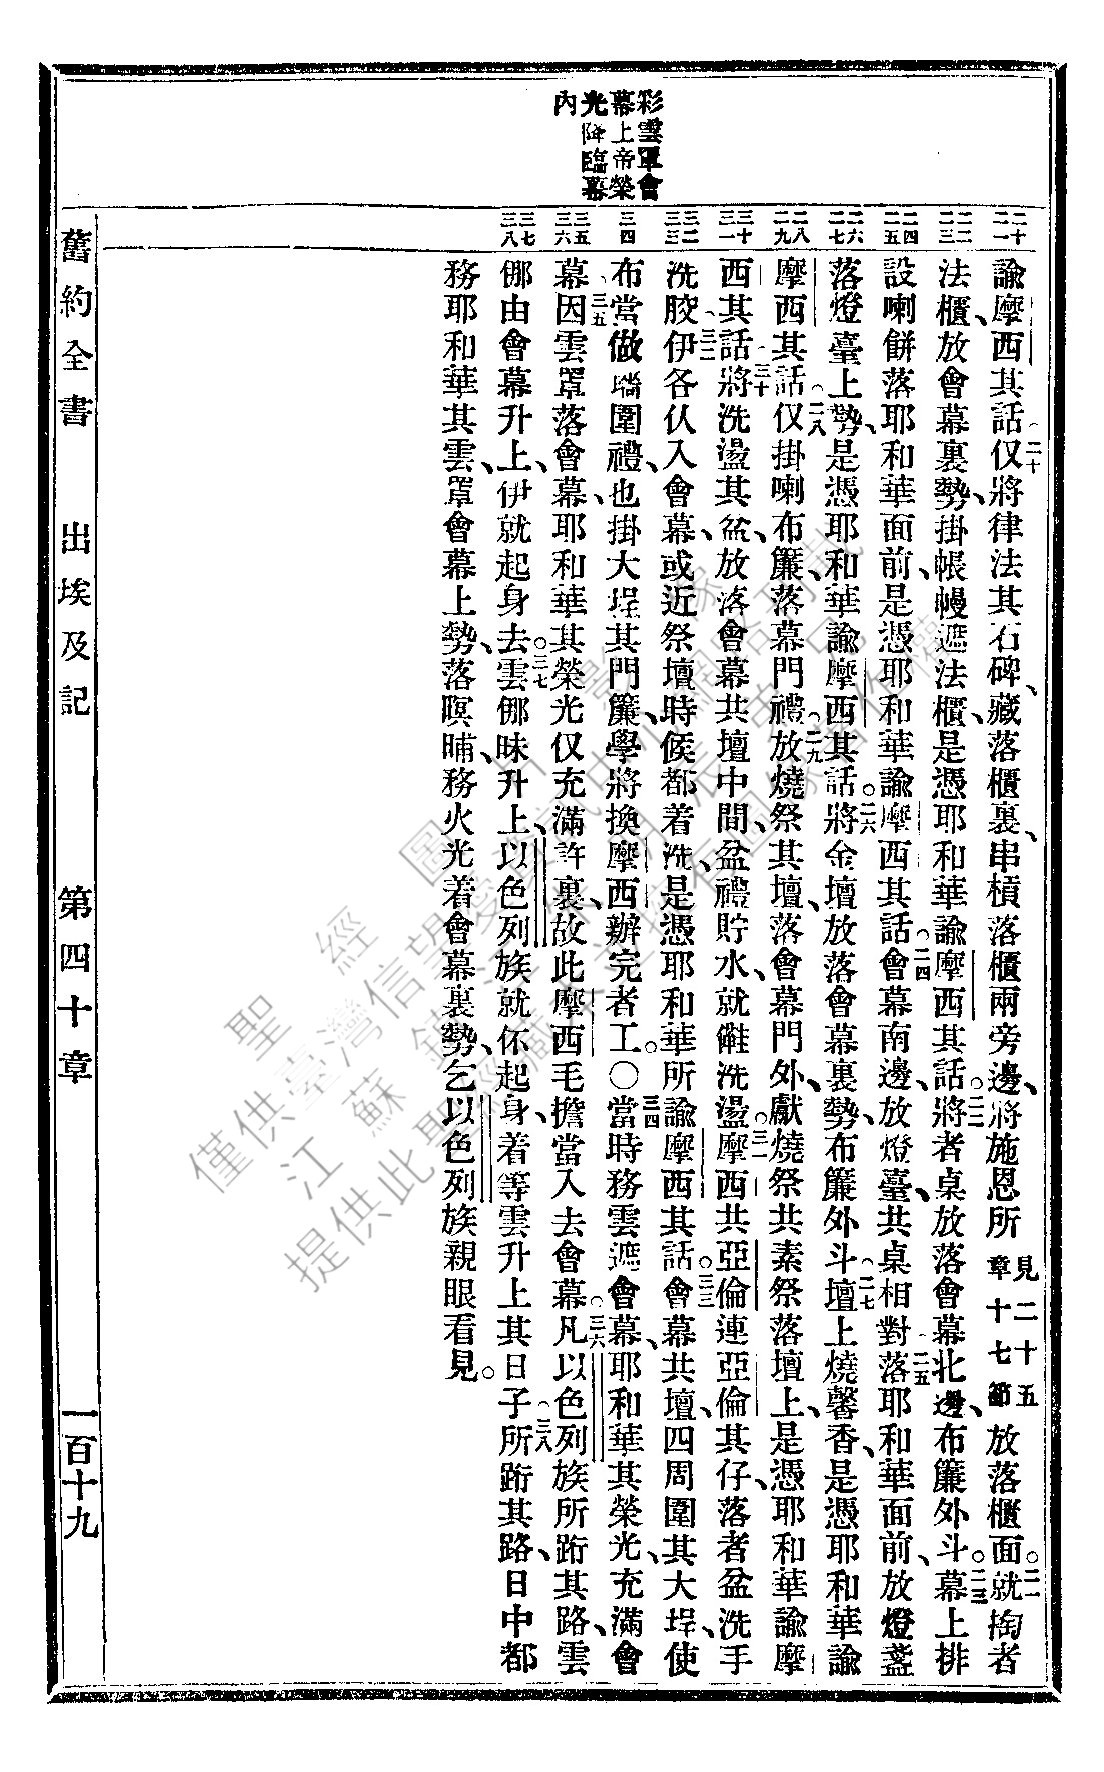 彩雲罩會
幕上帝榮
光降臨幕
內
二十 二一
二二 二三
二四 二五
二六 二七
二八 二九
三十 三一
三二 三三
三四
三五 三六
三七 三八
諭摩西其話仅二十將律法其石碑、藏落櫃裏、串槓落櫃兩旁邊、將施恩所見二十五章十七節放落櫃面。二一就掏者
法櫃、放會幕裏勢、掛帳幔遮法櫃、是憑耶和華諭摩西其話。二二將者桌放落會幕北邊、布簾外斗。二三幕上排
設喇餅落耶和華面前、是憑耶和華諭摩西其話二四會幕南邊、放燈臺、共桌相對二五落耶和華面前、放燈盞
落燈臺上勢、是憑耶和華諭摩西其話。二六將金壇放落會幕裏勢、布簾外斗二七壇上燒馨香、是憑耶和華諭
摩西其話二八仅掛喇布簾、落幕門禮二九放燒祭其壇、落會幕門外、獻燒祭共素祭落壇上、是憑耶和華諭摩
西其話三十將洗盪其盆、放落會幕共壇中間、盆禮貯水、就儺洗盪。三一摩西共亞倫連亞倫其仔、落者盆洗手
洗骹三二伊各仈入會幕、或近祭壇時候都着洗、是憑耶和華所諭摩西其話。三三會幕共壇、四周圍其大埕、使
布當做墻圍禮、也掛大埕其門簾、學將換摩西辦完者工。〇三四當時務雲遮會幕、耶和華其榮光、充滿會
幕三五因雲罩落會幕、耶和華其榮光仅充滿許裏、故此摩西毛擔當入去會幕三六凡以色列族所跨其路、雲
㑚由會幕升上、伊就起身去。三七雲㑚昧升上、以色列族就伓起身、着等雲升上其日子三八所跨其路、日中都
務耶和華其雲、罩會幕上勢、落暝晡、務火光着會幕裏勢、乞以色列族親眼看見。
舊約全書 出埃及記 第四十章 一百十九
聖經
僅供臺灣信望愛
江蘇
提供此聖經